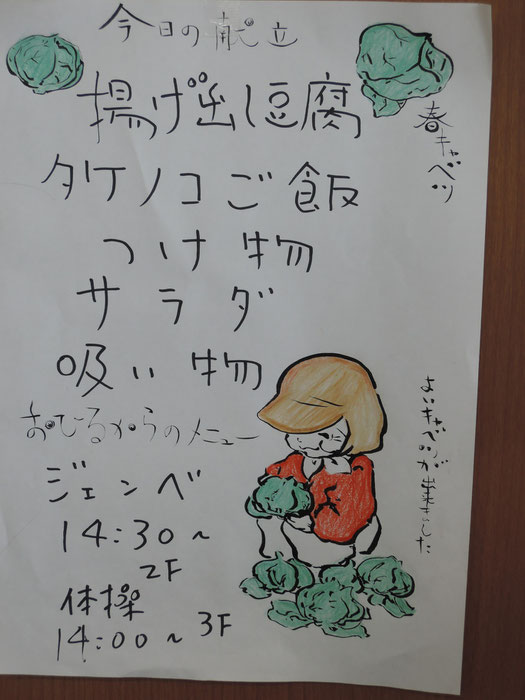 今日の献立
春キャベツ
揚げ出し豆腐
タケノコご飯
つけ物
サラダ
吸い物
よいキャベツが出来ました
おひるからのメニュー
ジェンベ
14:30~
2F
体操
14:00~ 3F